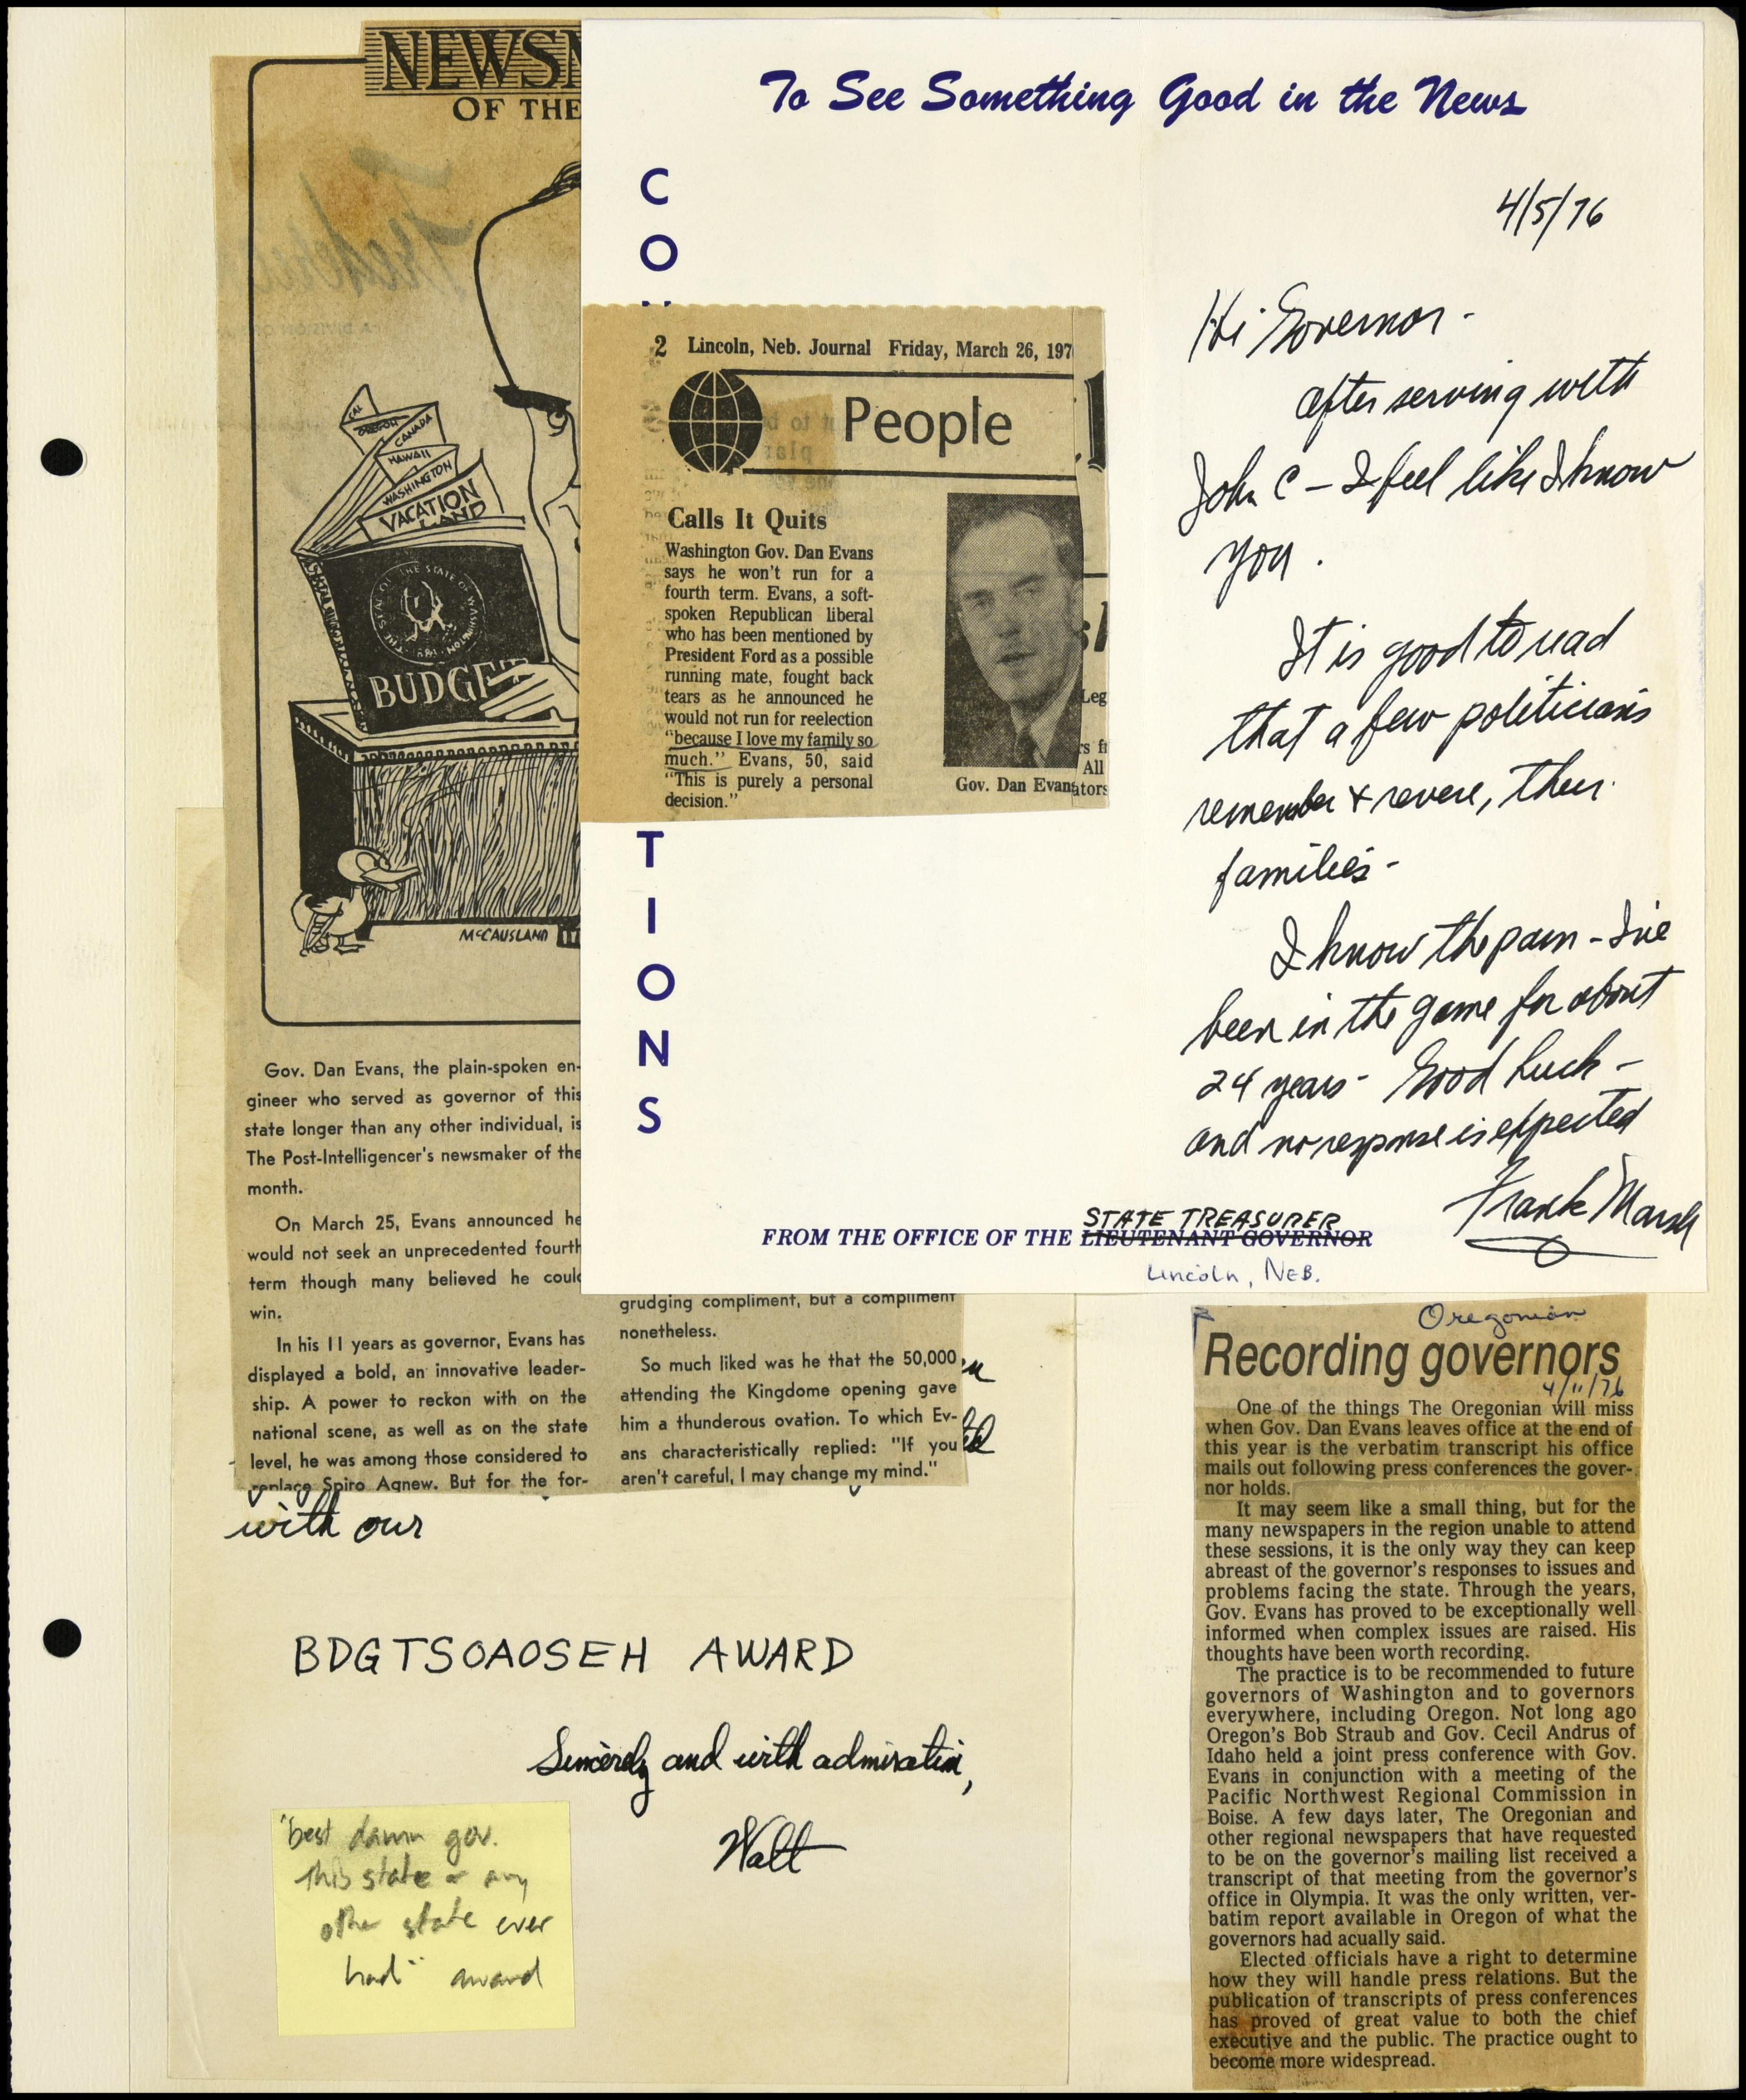 NEWSM
OF THE
CAL
OREGON
CANADA
HAWAII
WASHINGTON
VACATION
LAND
THE SEAL OF THE STATE OF WASHINGTON
1889
BUDGET
McCAUSLAND
Gov. Dan Evans, the plain-spoken en-
gineer who served as governor of this
state longer than any other individual, is
The Post-Intelligencer's newsmaker of the
month.
On March 25, Evans announced he
would not seek an unprecedented fourth
term though many believed he could
win.
In his 11 years as governor, Evans has
displayed a bold, an innovative leader-
ship. A power to reckon with on the
national scene, as well as on the state
level, he was among those considered to
replace Spiro Agnew. But for the for-
grudging compliment, but a compliment
nonetheless.
So much liked was he that the 50,000
attending the Kingdome opening gave
him a thunderous ovation. To which Ev-
ans characteristically replied: "If you
aren't careful, I may change my mind."
To See Something Good in the News
C
O
T
I
O
N
S
2 Lincoln, Neb. Journal Friday, March 26, 197
People
Calls It Quits
Washington Gov. Dan Evans
says he won't run for a
fourth term. Evans, a soft-
spoken Republican liberal
who has been mentioned by
President Ford as a possible
running mate, fought back
tears as he announced he
would not run for reelection
"because I love my family so
much." Evans, 50, said
"This is purely a personal
decision."
Gov. Dan Evans
Leg
rs fi
All
ators
4/5/76
Hi Governor -
after serving with
John C - I feel like I know
you.
It is good to read
that a few politicians
remember & revere, their
families -
I know the pain - I've
been in the game for about
24 years - Good Luck -
and no response is expected
Frank Marsh
STATE TREASURER
FROM THE OFFICE OF THE LIEUTENANT GOVERNOR
Lincoln, NEB.
with our
BDGTSOAOSEH AWARD
Sincerely and with admiration,
Walt
"best damn gov.
this state or any
other state ever
had" award
Oregonian
Recording governors
4/11/76
One of the things The Oregonian will miss
when Gov. Dan Evans leaves office at the end of
this year is the verbatim transcript his office
mails out following press conferences the gover-
nor holds.
It may seem like a small thing, but for the
many newspapers in the region unable to attend
these sessions, it is the only way they can keep
abreast of the governor's responses to issues and
problems facing the state. Through the years,
Gov. Evans has proved to be exceptionally well
informed when complex issues are raised. His
thoughts have been worth recording.
The practice is to be recommended to future
governors of Washington and to governors
everywhere, including Oregon. Not long ago
Oregon's Bob Straub and Gov. Cecil Andrus of
Idaho held a joint press conference with Gov.
Evans in conjunction with a meeting of the
Pacific Northwest Regional Commission in
Boise. A few days later, The Oregonian and
other regional newspapers that have requested
to be on the governor's mailing list received a
transcript of that meeting from the governor's
office in Olympia. It was the only written, ver-
batim report available in Oregon of what the
governors had acually said.
Elected officials have a right to determine
how they will handle press relations. But the
publication of transcripts of press conferences
has proved of great value to both the chief
executive and the public. The practice ought to
become more widespread.